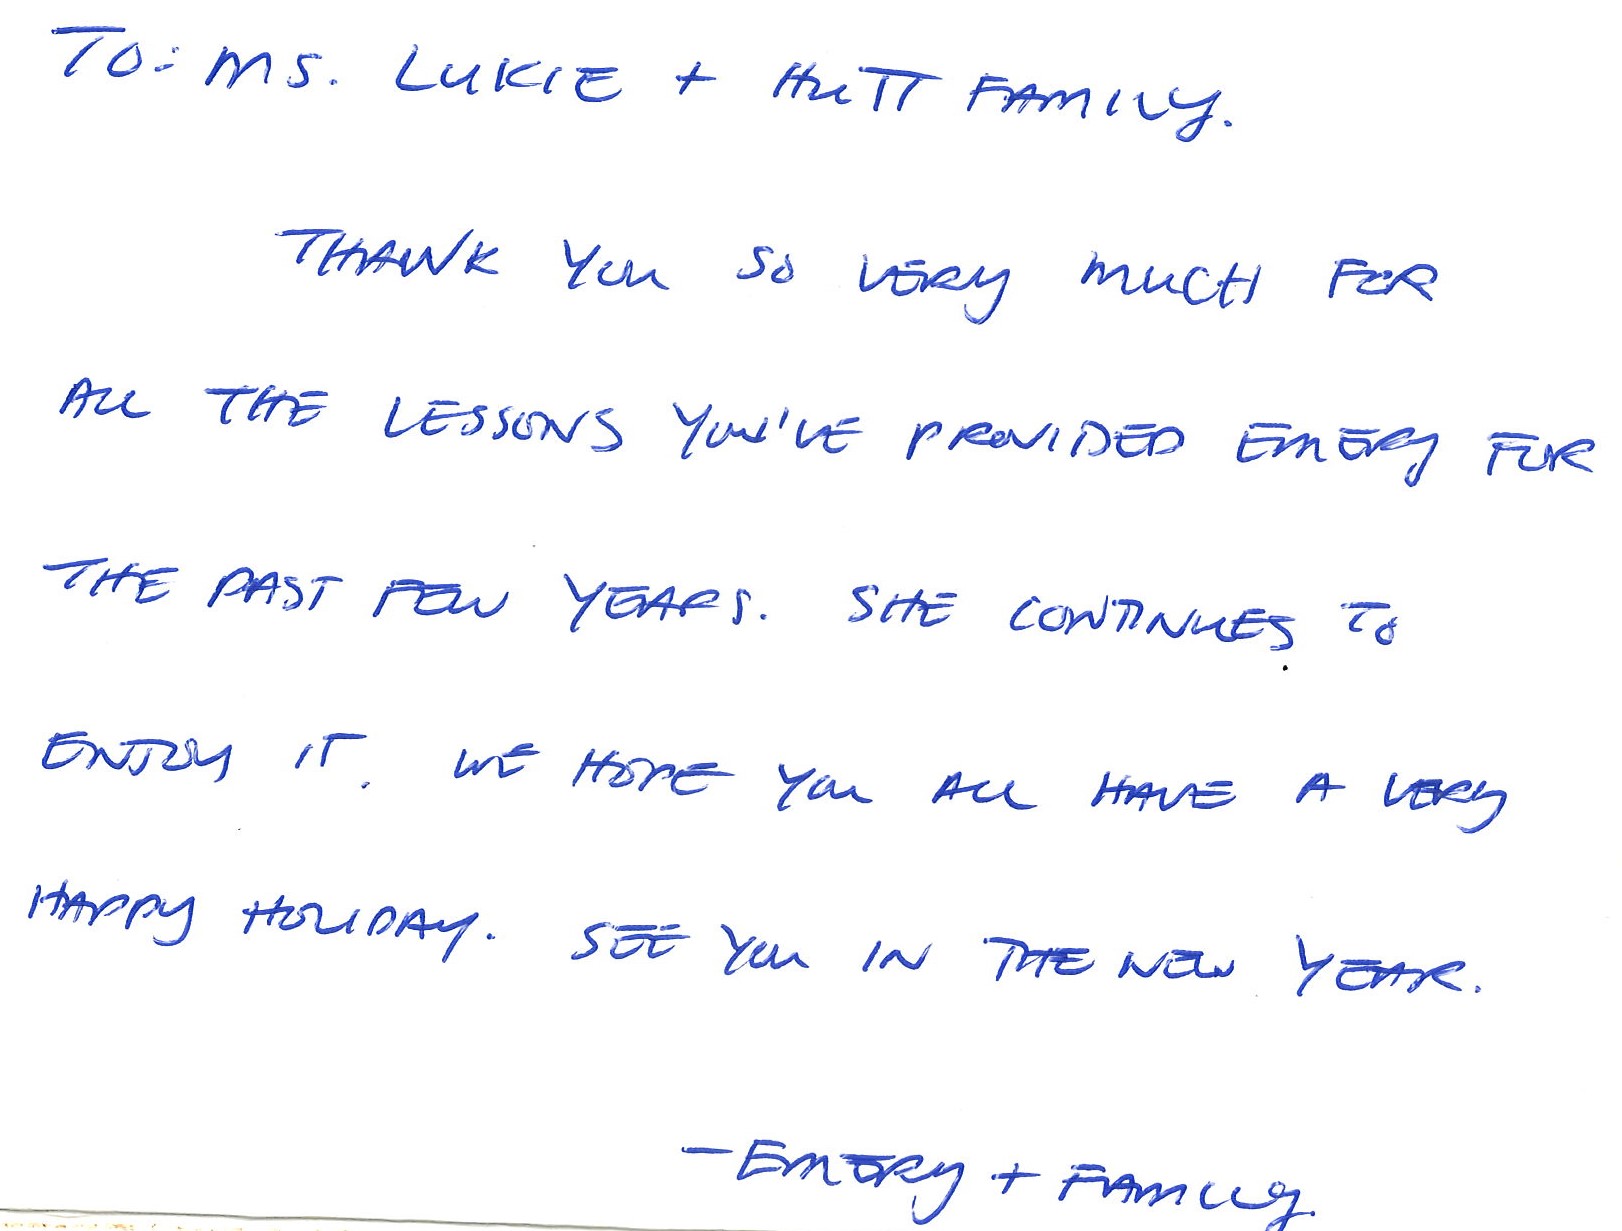 TO: MS. LUKIE + HUTT FAMILY.
THANK YOU SO VERY MUCH FOR
ALL THE LESSONS YOU'VE PROVIDED EMERY FOR
THE PAST FEW YEARS. SHE CONTINUES TO
ENJOY IT. WE HOPE YOU ALL HAVE A VERY
HAPPY HOLIDAY. SEE YOU IN THE NEW YEAR.
-EMERY + FAMILY.